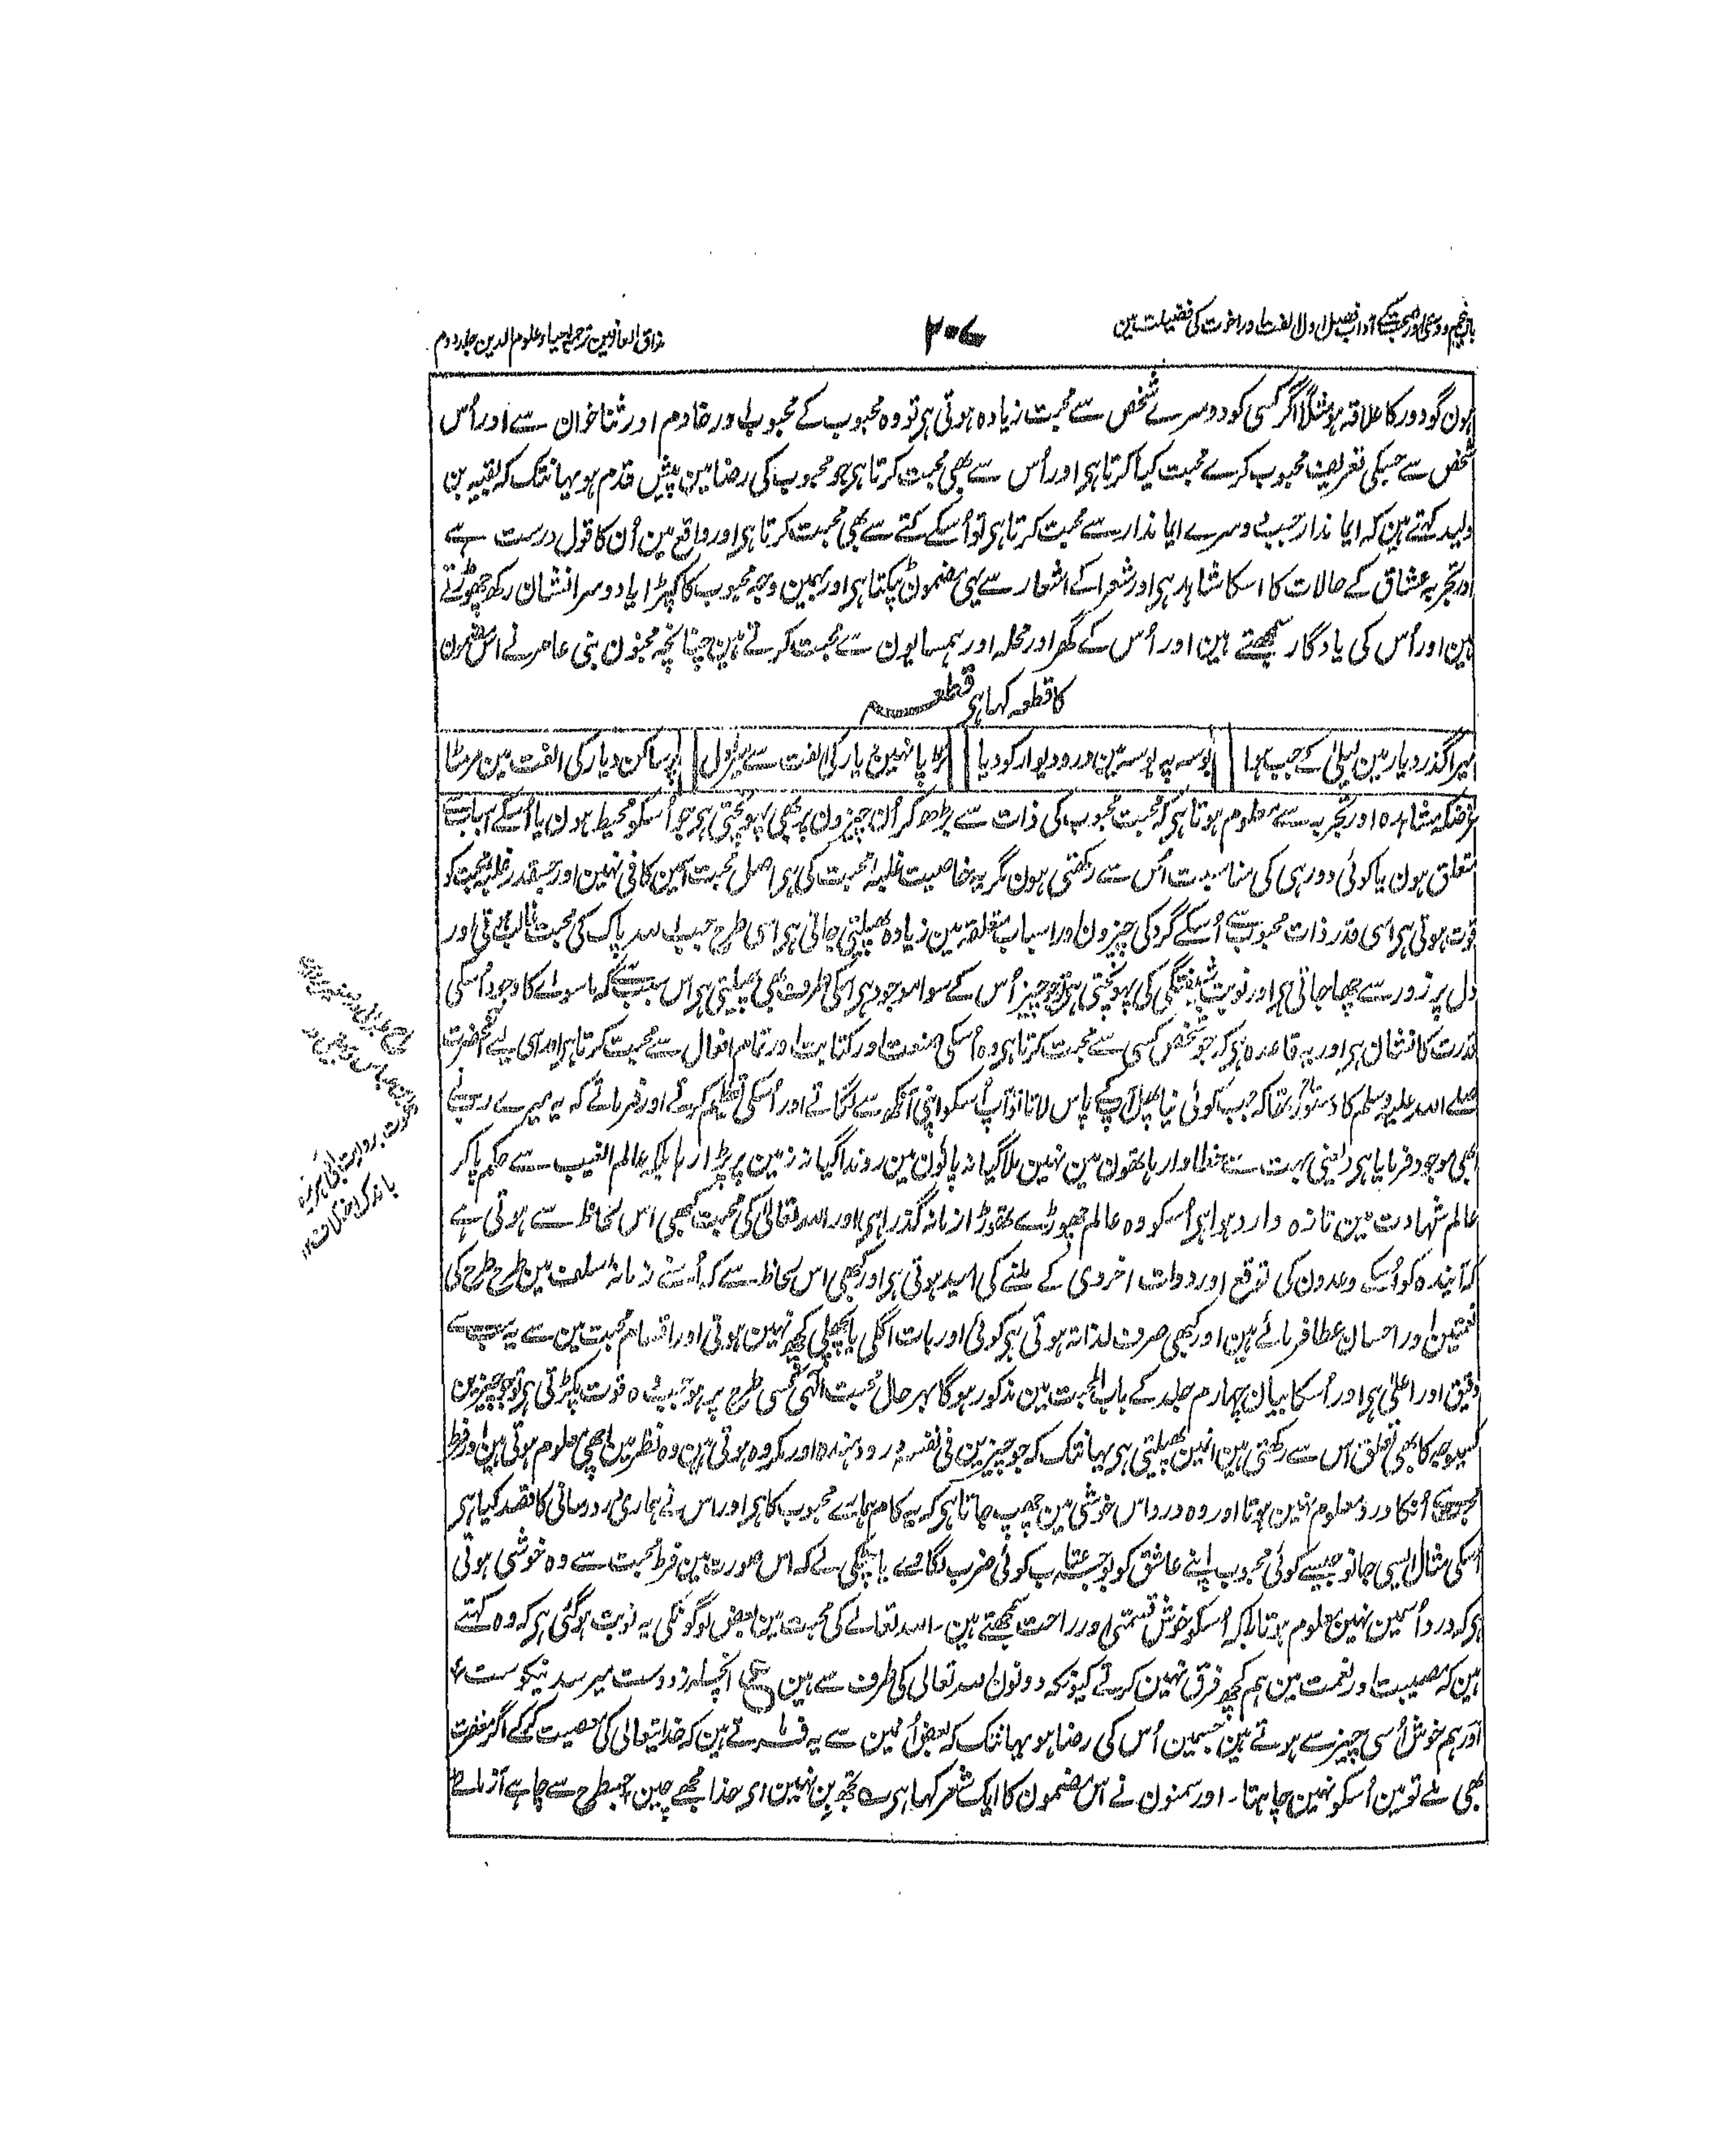 باب پنجم دوستی اور صحبت کے آداب فصل اول الفت اور اخوت کی فضیلت مین
۲۰۷
مذاق العارفین ترجمہ احیاء علوم الدین جلد دوم
ہون گو دور کا علاقہ ہو مثلاً اگر کسی کو دوسرے شخص سے محبت زیادہ ہوتی ہی تو وہ محبوب کے محبوب اور خادم اور ثنا خوان سے اور اُس
شخص سے جسکی تعریف محبوب کرے محبت کیا کرتا ہی اور اُس سے بھی محبت کرتا ہی جو محبوب کی رضا مین پیش قدم ہو یہانتک کہ بقیہ بن
ولید کہتے ہین کہ ایماندار جب دوسرے ایماندار سے محبت کرتا ہی تو اُسکے کتے سے بھی محبت کرتا ہی اور واقع مین اُن کا قول درست ہے
اور تجربہ عشاق کے حالات کا اسکا شاہد ہی اور شعرا کے اشعار سے یہی مضمون ٹپکتا ہی اور بہمین وجہ محبوب کا کپڑا یا دوسرا نشان رکھ چھوڑتے
ہین اور اُس کی یادگار سمجھتے ہین اور اُس کے گھر اور محلہ اور ہمسایون سے محبت کرتے ہین چنانچہ مجنون بنی عامر نے اس مضمون
کا قطعہ کہا ہی قطعہ
میرا گذر دیار مین لیلیٰ کے جب ہوا
بوسہ پہ بوسہ مین در و دیوار کو دیا
پا نہین یار کی الفت سے میرا دل
پر ساکن دیار کی الفت مین مر مٹا
غرضکہ مشاہدہ اور تجربہ سے معلوم ہوتا ہی کہ محبت محبوب کی ذات سے بڑھ کر اُن چیزون پر بھی پہونچتی ہی جو اُسکو محیط ہون یا اُسکے اسباب سے
متعلق ہون یا کوئی دور ہی کی مناسبت اُس سے رکھتی ہون مگر یہ خاصیت غلبہ محبت کی ہی اصل محبت اسمین کافی نہین اور جسقدر غلبہ محبت کو
قوت ہوتی ہی اسی قدر ذات محبوب سے اُسکے گرد کی چیزون اور اسباب متعلقہ مین زیادہ پھیلتی جاتی ہی اسی طرح جب اللہ پاک کی محبت غالب ہوتی اور
دل پر زور سے چھا جاتی ہی اور نوبت شیفتگی کی پہونچتی ہی تو جو چیز اُس کے سوا موجود ہی اسکی طرف بھی پھیلتی ہی اس سبب سے کہ ماسوا کا وجود اُسکی
قدرت کا نشان ہی اور یہ قاعدہ ہی کہ جو شخص کسی سے محبت کرتا ہی وہ اُسکی صنعت اور کتابت اور تمام افعال سے محبت کرتا ہی اور اسی لیے آنحضرت
صلے اللہ علیہ وسلم کا دستور تھا کہ جب کوئی نیا پھل آپکے پاس لاتا تو آپ اُسکو اپنی آنکھ سے لگاتے اور اُسکی تعظیم کرتے اور فرماتے کہ یہ میرے رب نے
ابھی موجود فرمایا ہی یعنی بہت سے خطاوار ہاتھون مین نہین ملا گیا نہ پاؤن مین روندا گیا نہ زمین پر پڑا رہا بلکہ عالم الغیب سے حکم پا کر
عالم شہادت مین تازہ وارد ہوا ہی اُسکو وہ عالم چھوڑے تھوڑا زمانہ گذرا ہی اور اللہ تعالیٰ کی محبت کبھی اس لحاظ سے ہوتی ہے
کہ آیندہ کو اُسکے وعدون کی توقع اور دولت اخروی کے ملنے کی امید ہوتی ہی اور کبھی اس لحاظ سے کہ اُسنے زمانہ سلف مین طرح طرح کی
نعمتین اور احسان عطا فرمائے ہین اور کبھی صرف لذاتہ ہوتی ہی کوئی اور بات اگلی یا پچھلی کچھ نہین ہوتی اور اقسام محبت مین سے یہ سب سے
دقیق اور اعلیٰ ہی اور اُسکا بیان چہارم جلد کے باب المحبت مین مذکور ہوگا بہر حال محبت الٰہی کسی طرح پر ہو جب وہ قوت پکڑتی ہی تو جو چیزین
کسیوجہ کا بھی تعلق اُس سے رکھتی ہین انمین پھیلتی ہی یہانتک کہ جو چیزین فی نفسہ درد دہندہ اور مکروہ ہوتی ہین وہ نظر مین اچھی معلوم ہوتی ہین اور فرط
محبت سے اُنکا درد معلوم نہین ہوتا اور وہ درد اس خوشی مین چھپ جاتا ہی کہ یہ کام ہمارے محبوب کا ہی اور اس نے ہماری درد رسانی کا قصد کیا ہی
اُسکی مثال ایسی جانو جیسے کوئی محبوب اپنے عاشق کو بوجہ عتاب کوئی ضرب لگاوے یا چٹکی لے کہ اس صورت مین فرط محبت سے وہ خوشی ہوتی
ہی کہ درد اُسمین نہین معلوم ہوتا بلکہ اُسکو خوش قسمتی اور راحت سمجھتے ہین۔ اللہ تعالے کی محبت مین بعض لوگونکی یہ نوبت ہوگئی ہی کہ وہ کہتے
ہین کہ مصیبت اور نعمت مین ہم کچھ فرق نہین کرتے کیونکہ دونون اللہ تعالی کی طرف سے ہین ع انچہ از دوست میرسد نیکوست ۴
اور ہم خوش اُسی چیز سے ہوتے ہین جسمین اُس کی رضا ہو یہانتک کہ بعض اُنمین سے یہ فرماتے ہین کہ خدایتعالی کی معصیت کرکے اگر مغفرت
بھی ملے تو مین اُسکو نہین چاہتا۔ اور سمنون نے اس مضمون کا ایک شعر کہا ہی ؎ تجھ بن نہین ای خدا مجھے چین + جسطرح سے چاہے آزمالے
بروایت ابی ہریرہ
باندک اختلاف ۱۲